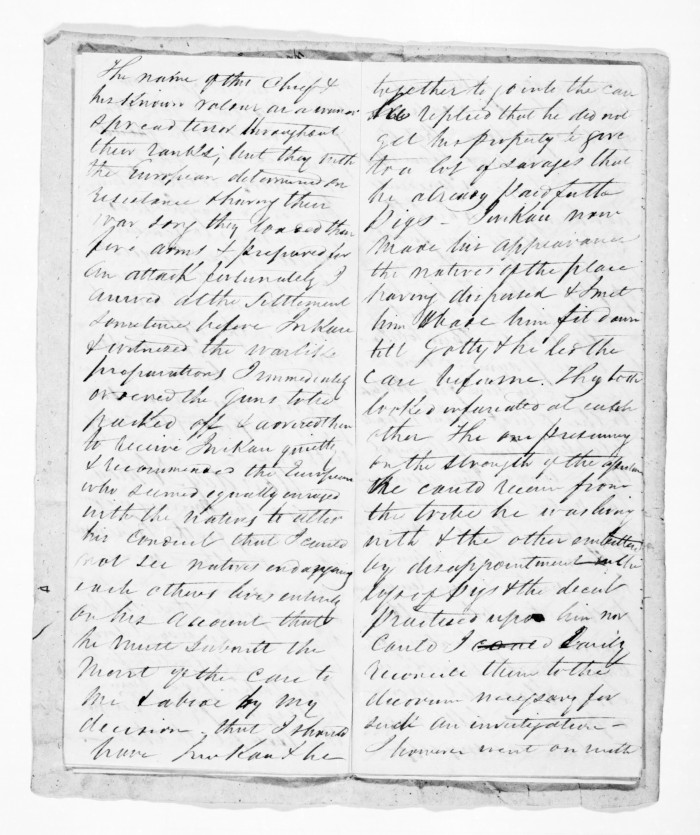 The name of this Chief &
his known valour as a warrior
spread terror throughout
their ranks; but they with
the European determined on
resistance & having their
war song they loaded their
fire arms & prepared for
an attack fortunately I
arrived at the Settlement
sometime before InKau
& witnessed the warlike
preparations I immediately
ordered the guns to be
packed off & advised them
to receive InKau quietly
& recommended the European
who seemed equally enraged
with the natives to alter
his conduct that I could
not see natives endangering
each others lives entirely
on his account that
he must submit the
merit of the case to
me & abide by my
decision, that I should
have InKau & he
together to go into the case
He replied that he did not
get his property to give
to a lot of savages that
he already paid for the
Pigs - InKau now
made his appearance
the natives of the place
having dispersed & I met
him & made him sit down
till Gotty & he led the
case before me. They both
looked infuriated at each
other The one presuming
on the strength of the
he could receive from
the tribe he was living
with & the other embittered
by disappointment in the
loss of Pigs & the deceit
practised upon him nor
could I easily
reconcile them to the
decorum necessary for
such an investigation -
I however went on with